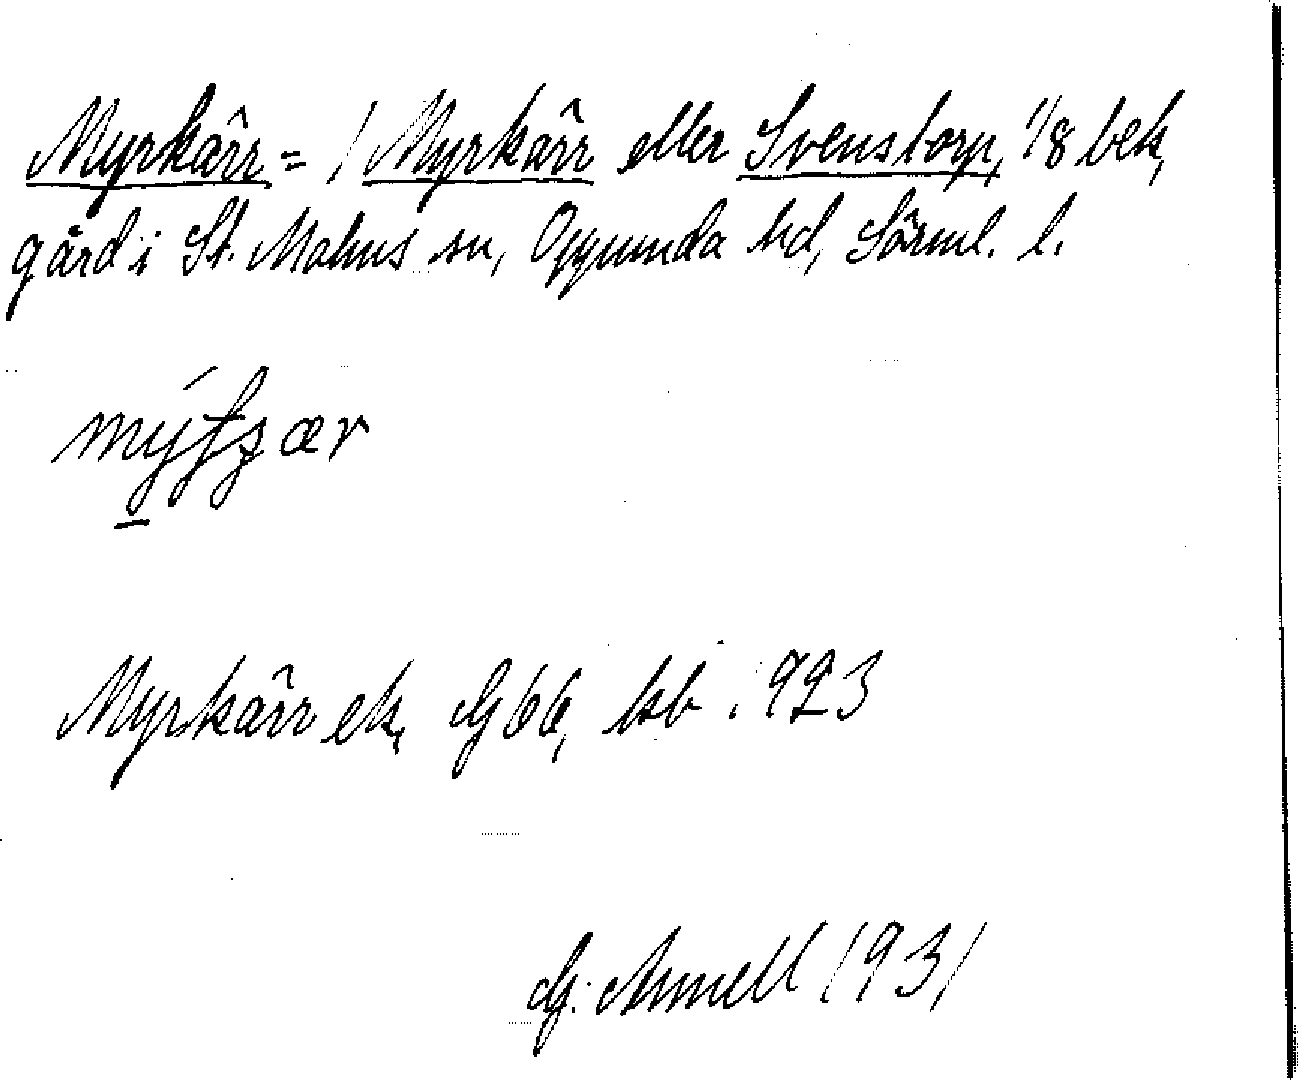 Myrkärr = 1 Myrkärr eller Svenstorp, 1/8 bek,
gård i St. Malms sn, Oppunda hd, Sörml. l.
Myrkärr ek, G 66, bb. 923
G. Armell 1931